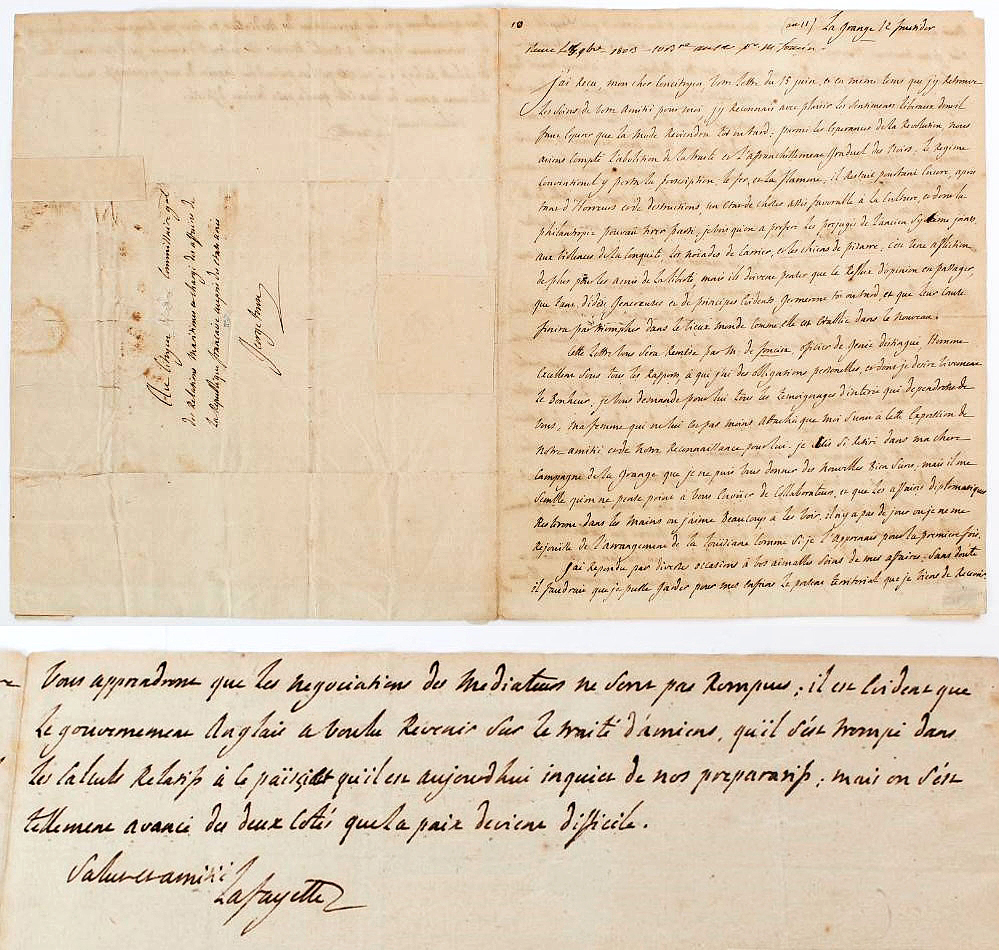 10
(an 11) La Grange 12 fructidor
J'ai Reçu, mon cher Concitoyen Votre Lettre du 15 juin, et en même tems que j'y Retrouve
Les Soins de Votre Amitié pour moi, j'y Reconnais avec plaisir les Sentiments liberaux dont il
faut esperer que la mode Reviendra tôt ou tard; parmi les Esperances de la Revolution, nous
avions Compté l'abolition de la traite et l'affranchissement Graduel des Noirs. le Regime
Conventionel y porta la proscription, le fer, et la flamme; il Restait pourtant Encore, après
tant d'Horreurs et de destructions, un Etat de choses assés favorable à la Culture, et dont la
philantropie pouvait tirer parti, je vois qu'on a préféré les préjugés de l'ancien Système joints
aux Violences de la Conquête, les noïades de Carrier, et les chiens de pizarre, c'est une affliction
de plus pour les amis de la liberté, mais ils doivent penser que le Reflux d'opinion est passager,
que tant d'idées Genereuses et de principes Evidents Germeront tôt ou tard, et que leur Cause
finira par triompher dans le Vieux monde Comme elle est Etablie dans le nouveau.
Cette Lettre Vous Sera Remise par M. de foncin, officier de Genie distingué Homme
Excellent Sous tous les Rapports, à qui j'ai des obligations personelles, et dont je desire Vivement
le Bonheur, je Vous demande pour lui tous les temoignages d'interet qui dependront de
Vous, ma femme qui ne lui est pas moins attachée que moi S'unit à Cette Expression de
notre amitié et de notre Reconnaissance pour lui. je Suis Si Retiré dans ma chere
Campagne de la Grange que je ne puis Vous donner des nouvelles Bien Sures, mais il me
Semble qu'on ne pense point à Vous Envoier de Collaborateurs, et que les affaires diplomatiques
Resteront dans les mains où j'aime Beaucoup à les Voir, il n'y a pas de jour où je ne me
Rejouisse de l'arrangement de la Louisiane Comme Si je l'apprenais pour la premiere fois.
J'ai Repondu par diverses occasions à Vos aimables Soins de mes affaires. Sans doute
il faudrait que je pusse Garder pour mes enfans le present territorial que je Viens de Recevoir.
Au Citoyen Commissaire gal
des Relations Maritimes et chargé des affaires de
la Republique française auprès des etats unis
Georgetown
Vous apprendrez que les negociations des Mediateurs ne Sont pas Rompues; il est Evident que
le gouvernement Anglais a Voulu Revenir Sur le traité d'amiens, qu'il s'est trompé dans
les Calculs Relatifs à Ce païs, et qu'il est aujourd'hui inquiet de nos preparatifs; mais on S'est
tellement avancé des deux Cotés que la paix devient difficile.
Salut et amitié
Lafayette